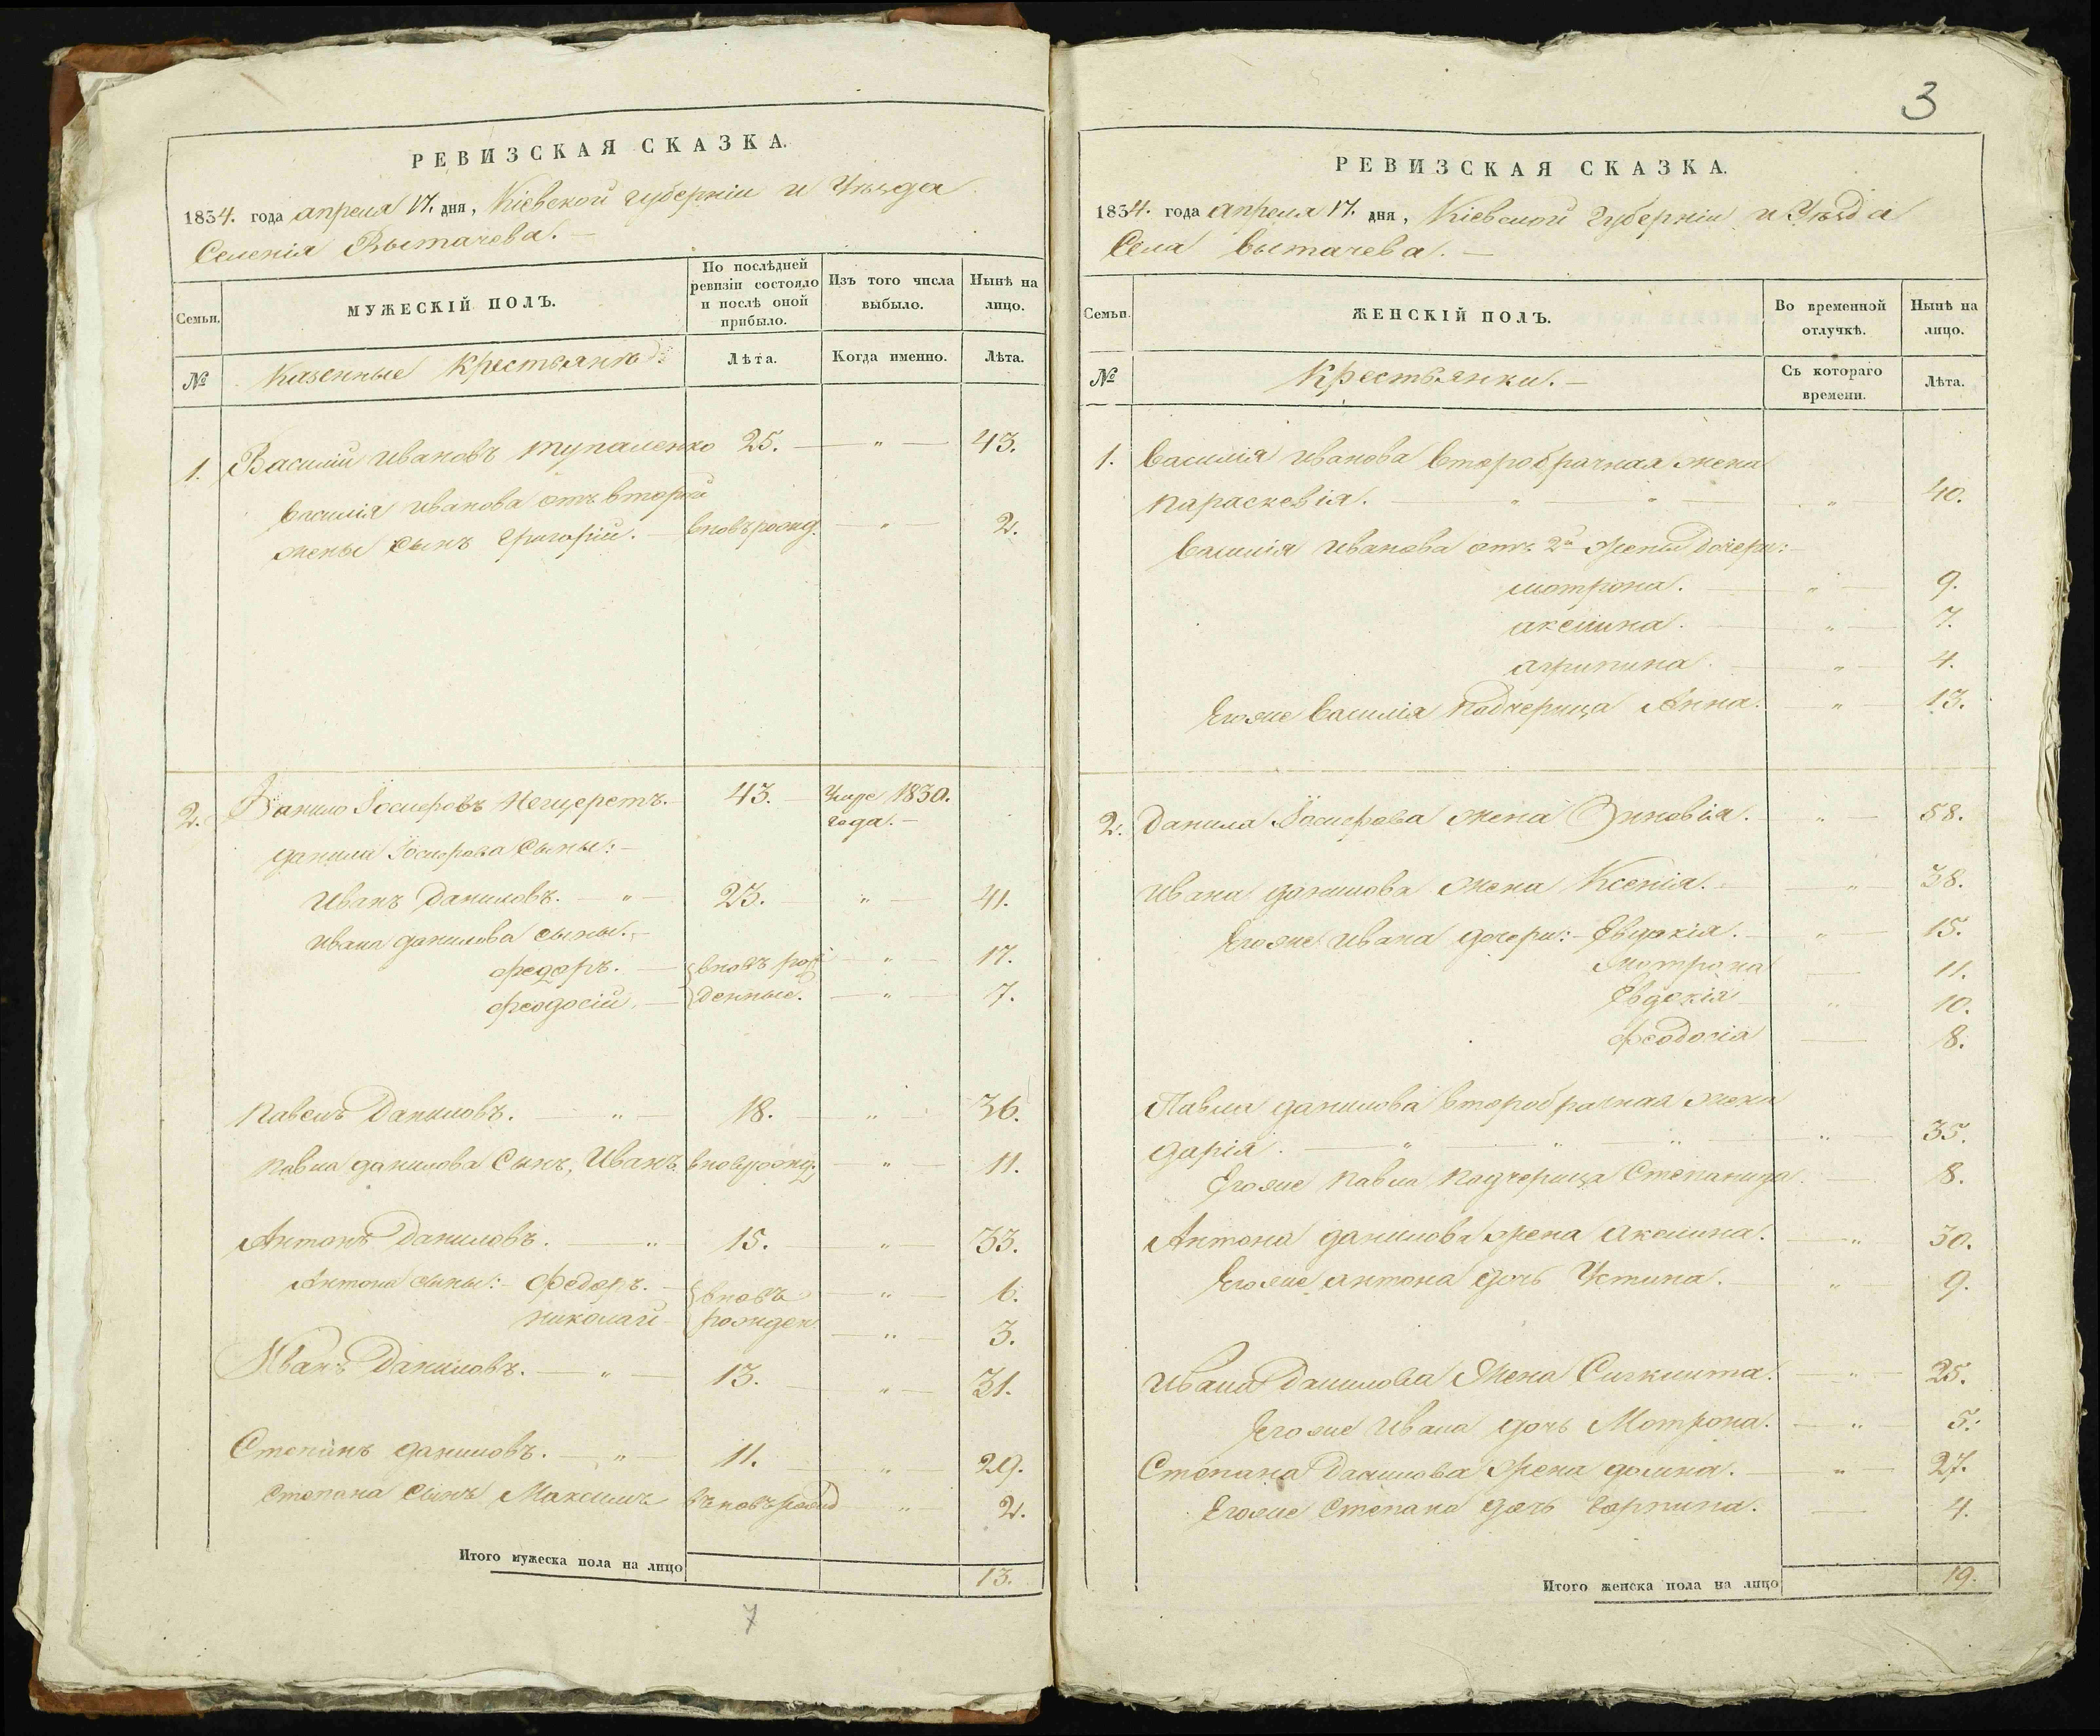 РЕВИЗСКАЯ СКАЗКА.
1834. года апреля 17. дня, Кіевской губерніи и Уѣзда
Селенія Вытачева.
Семьи.
МУЖЕСКІЙ ПОЛЪ.
По послѣдней ревизіи состояло и послѣ оной прибыло.
Изъ того числа выбыло.
Нынѣ на лицо.
№
Казенные Крестьяне
Лѣта.
Когда именно.
Лѣта.
1. Василій Ивановъ Тупаленко 25. — „ — 43.
Василія Иванова отъ второй
жены сынъ Григорій. — вновьрожд. — „ — 2.
2. Данило Іосифовъ 43. — Умре 1830.
года. —
Данила Іосифова Сыны: —
Иванъ Даниловъ. — „ — 23. „ — 41.
Ивана Данилова сыны. —
Федоръ. — вновь рож — „ — 17.
Феодосій. — денные. — „ — 7.
Павелъ Даниловъ. — „ — 18. — „ 36.
Павла Данилова Сынъ, Иванъ вноврожд. — „ — 11.
Антонъ Даниловъ. — „ 15. „ — 33.
Антона сыны: — Федоръ. — вновь — „ — 6.
Николай — рожден. — „ — 3.
Иванъ Даниловъ. — „ — 13. — „ — 31.
Степанъ Даниловъ. — „ — 11. — „ 29.
Степана Сынъ Максимъ вновьрожд — „ 2.
Итого мужеска пола на лицо 13.
7
3
РЕВИЗСКАЯ СКАЗКА.
1834. года апреля 17. дня, Кіевской Губерніи и Уѣзда
Села Вытачева. —
Семьи.
ЖЕНСКІЙ ПОЛЪ.
Во временной отлучкѣ.
Нынѣ на лицо.
№
Крестьянки. —
Съ котораго времени.
Лѣта.
1. Василія Иванова второбрачная жена
Параскевія. — „ — „ — „ 40.
Василія Иванова отъ 2й жены Дочери: —
Мотрона. — „ — 9.
Аксинина. — „ — 7.
Агрипина. — „ — 4.
Егоже Василія Падчерица Анна. „ — 13.
2. Данила Іосифова жена Зиновія. „ — 58.
Ивана Данилова жена Ксенія. — „ — 38.
Егоже Ивана дочери: — Евдокія. — „ — 15.
Мотрона — 11.
Евдокія — „ 10.
Феодосія — 8.
Павла Данилова второбрачная жена
Дарія. — „ — „ — „ — „ — 35.
Егоже Павла Падчерица Степанида. — 8.
Антона Данилова жена Аксинина. — „ 30.
Егоже Антона дочь Устина. — „ — 9.
Ивана Данилова Жена — „ — 25.
Егоже Ивана дочь Мотрона. — „ — 5.
Степана Данилова жена Домна. — „ — 27.
Егоже Степана дочь Горпина. — 4.
Итого женска пола на лицо 19.